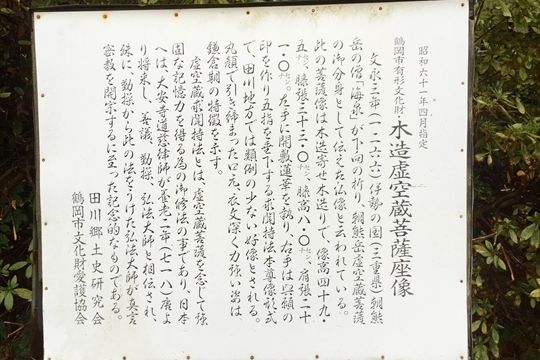 昭和六十一年四月指定
鶴岡市有形文化財 木造虚空蔵菩薩座像
文永三年(一二六六)伊勢の国(三重県)朝熊
岳の僧「海泉」が下向の折り、朝熊岳虚空蔵菩薩
の御分身として伝えた仏像と云われている。
此の菩薩像は木造寄せ木造りで、像高四十九・
五㌢、膝張三十三・〇㌢、膝高八・〇㌢、肩張二十
一・〇㌢。左手に開敷蓮華を執り、右手は與願の
印を作り五指を垂下する求聞持法本尊像形式
で、田川地方では類例の少ない好像とされる。
丸顔で引き締まった口元、衣文深く力強い姿は、
鎌倉期の特徴を示す。
虚空蔵求聞持法とは、虚空蔵菩薩を念じて強
固な記憶力を得る為の御修法の事であり、日本
へは、大安寺道慈律師が養老二年(七一八)唐よ
り将来し、善議、勤操、弘法大師と相伝され、
殊に、勤操から此の法をうけた弘法大師が真言
密教を開宗するに至った記念的なものである。
田川郷土史研究会
鶴岡市文化財愛護協会